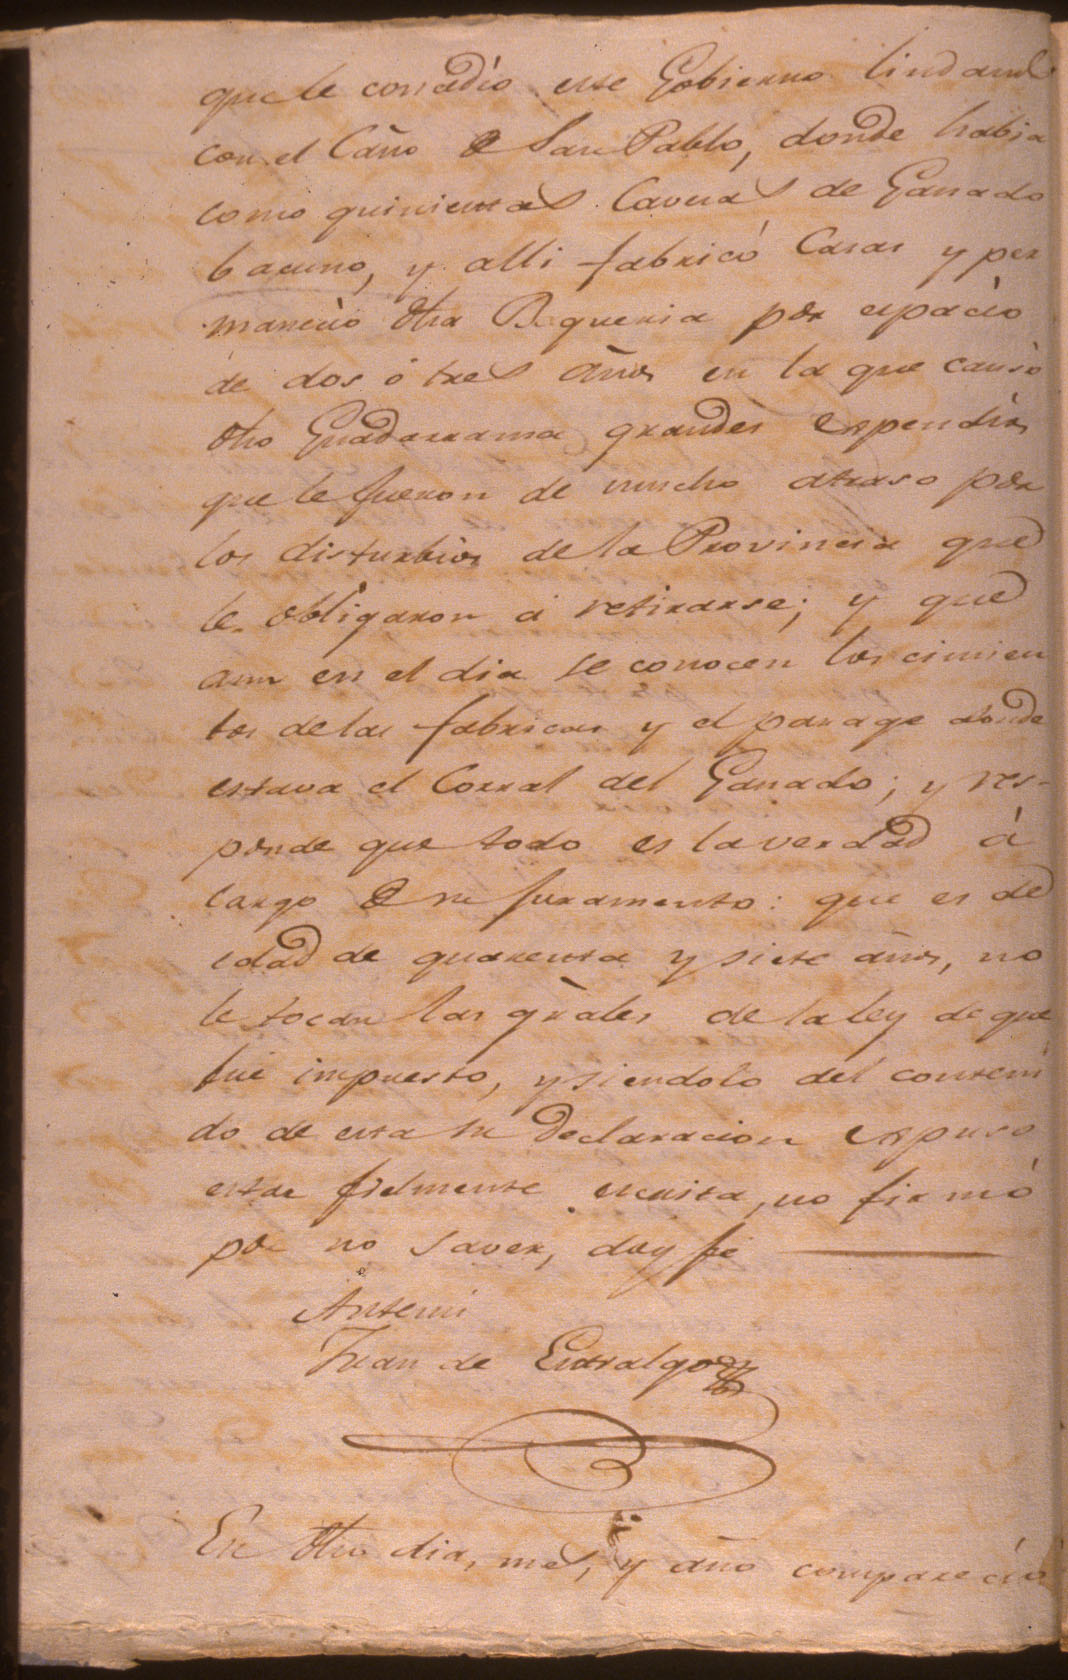 que le concedio ese Gobierno lindando
con el Caño de San Pablo, donde habia
como quinientas Cavezas de Ganado
bacuno, y alli fabricó Casas y per
maneció dha Baqueria por espacio
de dos ó tres años en la que causó
dho Guadarrama grandes expendios
que le fueron de mucho atraso por
los disturbios de la Provincia que
le obligaron á retirarse; y que
aun en el dia se conocen los cimien
tos de las fabricas y el parage donde
estava el Corral del Ganado; y res-
ponde que todo es la verdad á
cargo de su juramento: que es de
edad de quarenta y siete años, no
le tocan las grāles de la ley de que
fué impuesto, y siendolo del conteni
do de esta su declaracion expuso
estar fielmente escrita, no firmó
por no saver, doy fé
Antemi
Juan de Entralgo
En dho dia, mes, y año compareció